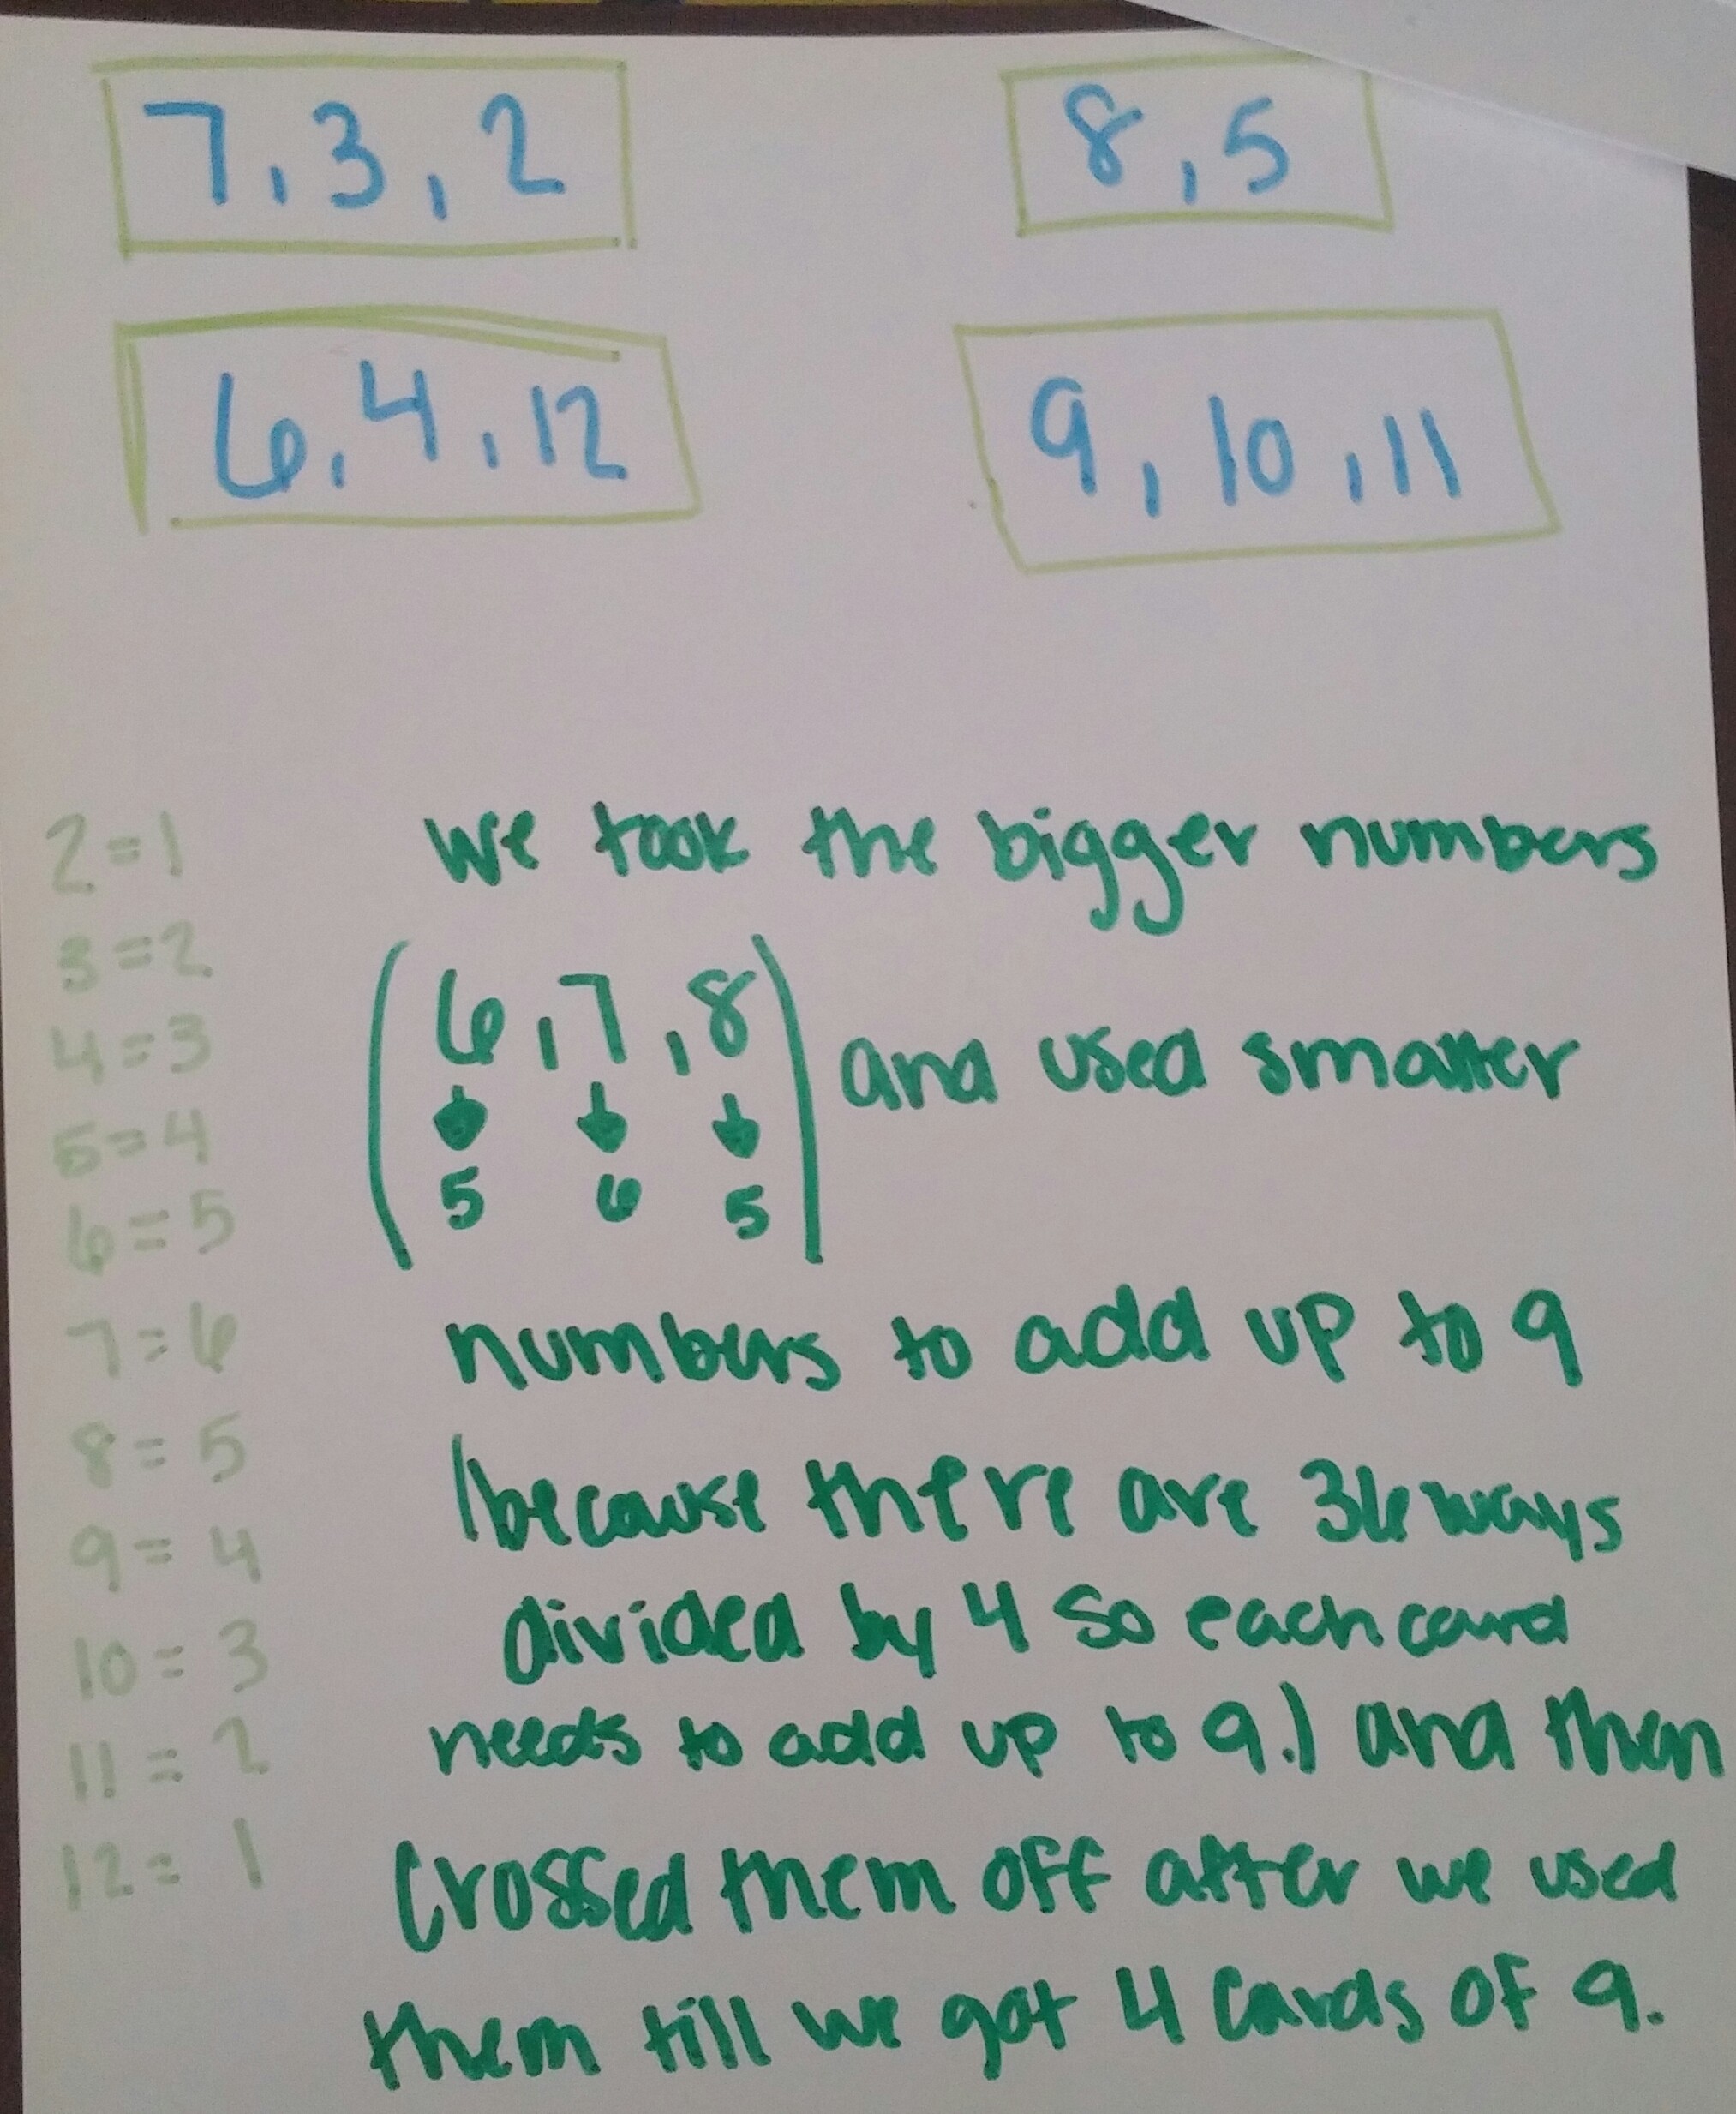 7, 3, 2
8, 5
6, 4, 12
9, 10, 11
2=1
3=2
4=3
5=4
6=5
7=6
8=5
9=4
10=3
11=2
12=1
we took the bigger numbers
(6, 7, 8) and used smaller
5 6 5
numbers to add up to 9
(because there are 36 ways
divided by 4 so each card
needs to add up to 9.) and then
crossed them off after we used
them till we got 4 cards of 9.